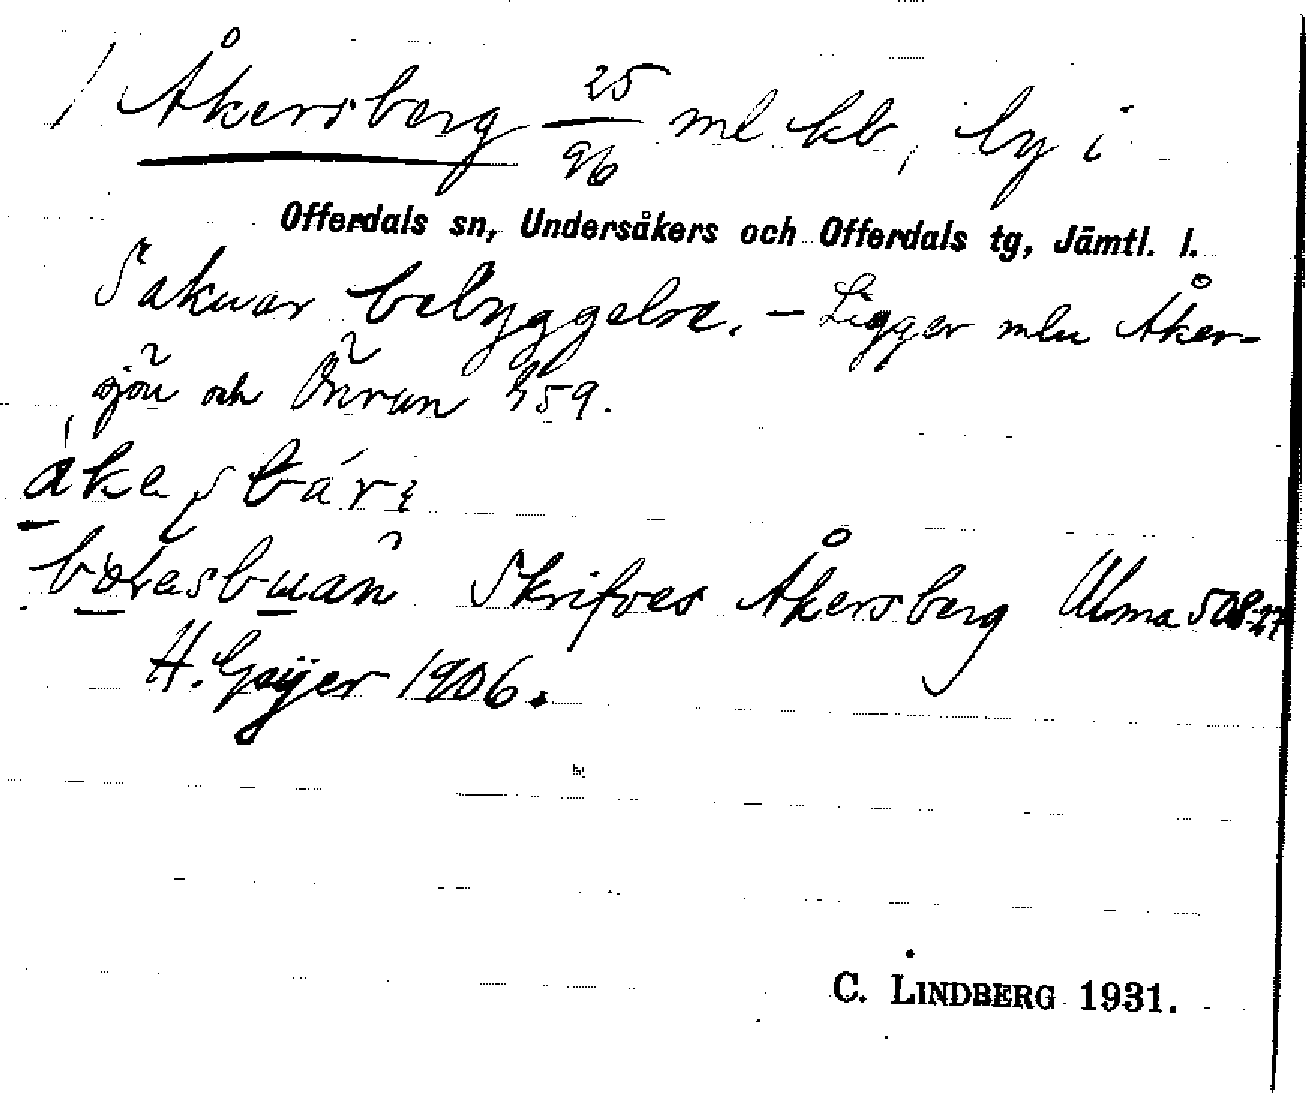 / Åkersberg 25/96 ml kb, by i
Offerdals sn, Undersåkers och Offerdals tg, Jämtl. l.
Saknar bebyggelse. – Ligger mlu Åker-
sjön och Önran 559.
åkaʂbárɛ
Skrifves Åkersberg Uma 508:27
H. Geijer 1906.
C. LINDBERG 1931.